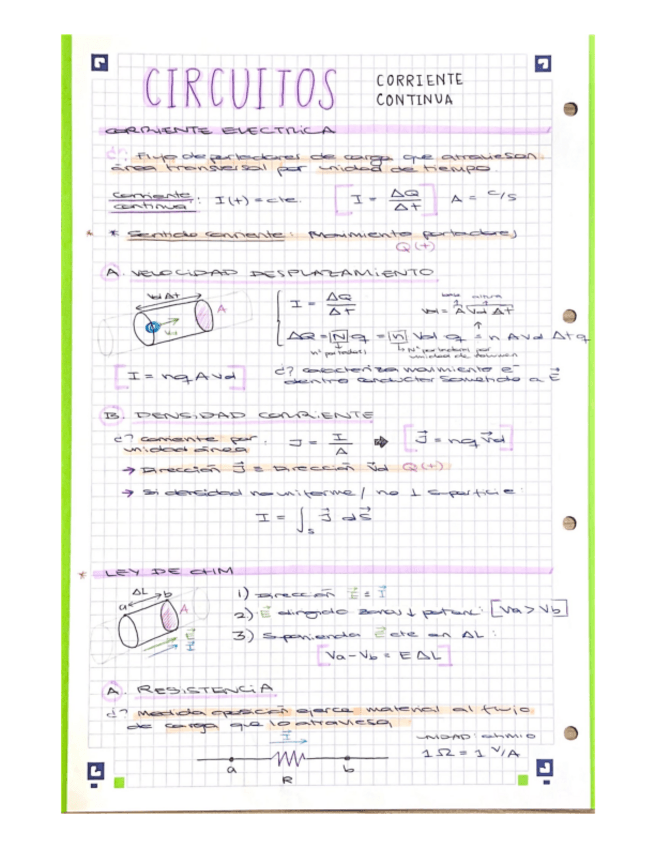 CIRCUITOS CORRIENTE CONTINUA
CORRIENTE ELECTRICA
d?: Flujo de portadores de carga que atraviesan
área transversal por unidad de tiempo.
Corriente continua: I(t) = cte. [I = ΔQ/Δt] A = C/s
* * Sentido corriente: Movimiento portadores
Q(+)
A. VELOCIDAD DESPLAZAMIENTO
Vd Δt
A
Vd
I = ΔQ/Δt
base altura
Vol = A Vd Δt
ΔQ = N q = n Vol q = n A Vd Δt q
nº portadores
Nº portadores por
unidad de volumen
[I = nq A Vd]
d? caracteriza movimiento e⁻
dentro conductor sometido a E⃗
B. DENSIDAD CORRIENTE
d? corriente por
unidad área
J = I/A ➡ [J⃗ = nq V⃗d]
→ Dirección J⃗ = Dirección V⃗d Q(+)
→ Si densidad no uniforme / no ⊥ superficie:
I = ∫s J⃗ dS⃗
* LEY DE OHM
ΔL
a b
A
E⃗
I⃗
1) Dirección E⃗ = I⃗
2) E⃗ dirigido zonas ↓ potenc: [Va > Vb]
3) Suponiendo E⃗ cte en ΔL:
[Va - Vb = E ΔL]
A. RESISTENCIA
d? Medida oposición ejerce material al flujo
de carga que lo atraviesa
I⃗
a b
R
UNIDAD: ohmio
1 Ω = 1 V/A